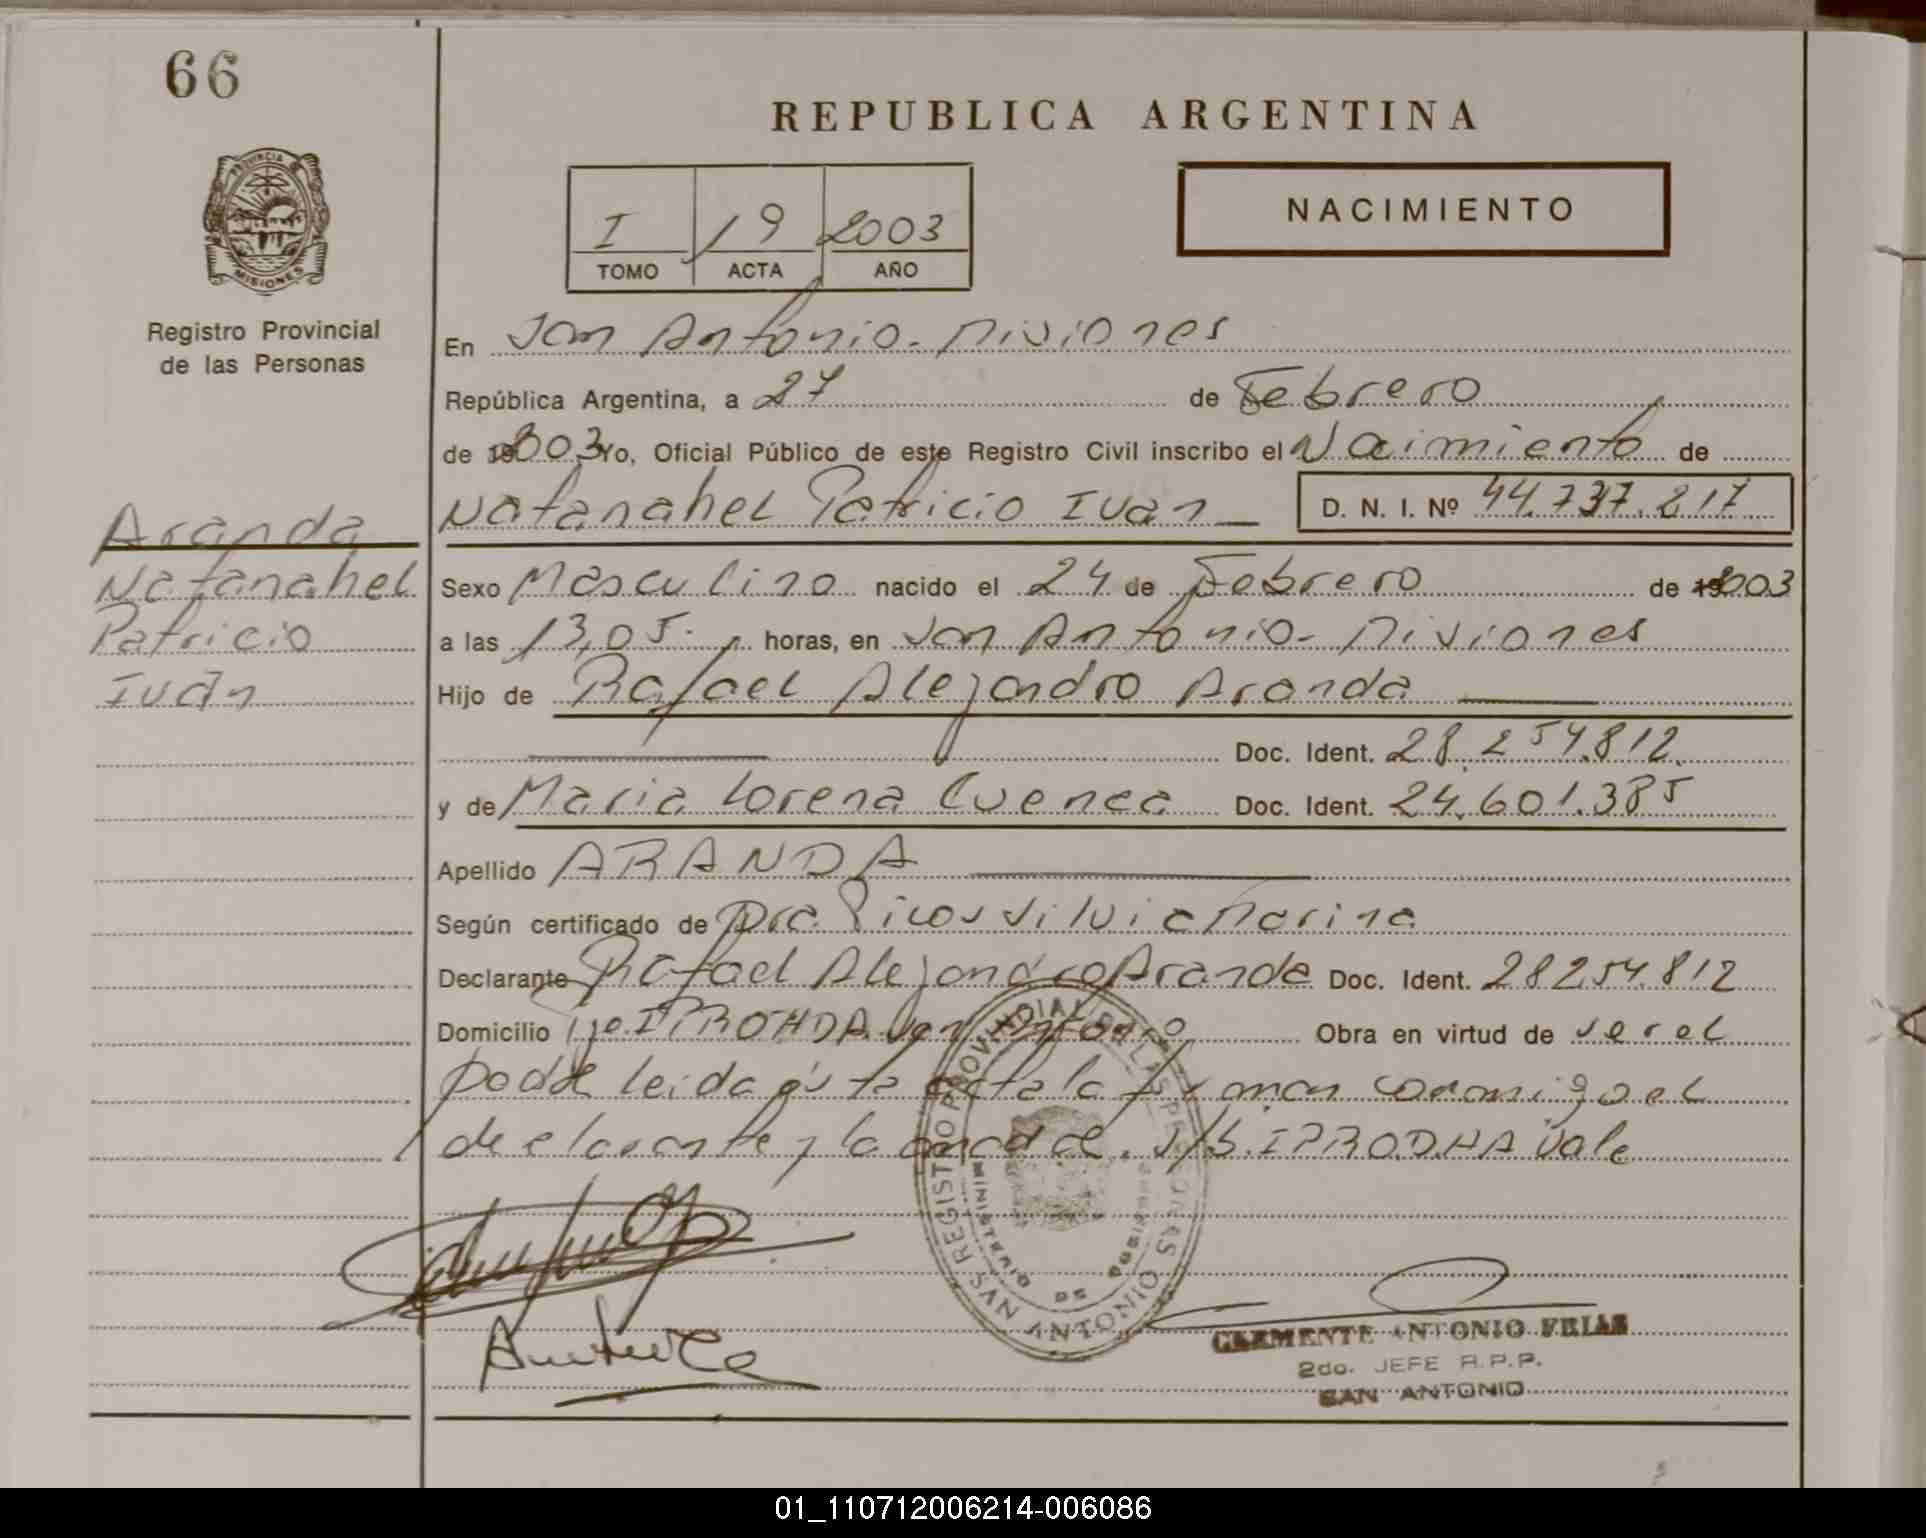 66
REPUBLICA ARGENTINA
PROVINCIA DE
MISIONES
I 19 2003
TOMO ACTA AÑO
NACIMIENTO
Registro Provincial
de las Personas
En San Antonio. Misiones
República Argentina, a 27 de Febrero
de 2003 Yo, Oficial Público de este Registro Civil inscribo el Nacimiento de
Natanahel Patricio Ivan D. N. I. Nº 44.737.217
Aranda
Natanahel
Patricio
Iván
Sexo Masculino nacido el 24 de Febrero de 2003
a las 13,05. horas, en San Antonio - Misiones
Hijo de Rafael Alejandro Aranda
Doc. Ident. 28.254.812.
y de Maria Lorena Cuenca Doc. Ident. 24.601.385
Apellido ARANDA
Según certificado de Dra. Picos Silvia Marina
Declarante Rafael Alejandro Aranda Doc. Ident. 28254.812
Domicilio IPRODHA San Antonio Obra en virtud de ser el
padre leida ésta acta la firman conmigo el
declarante y la madre. S/b. IPRODHA Vale
REGISTRO PROVINCIAL DE LAS PERSONAS
MINISTERIO DE GOBIERNO
SAN ANTONIO
CLEMENTE ANTONIO FRIAS
2do. JEFE R.P.P.
SAN ANTONIO
01_110712006214-006086